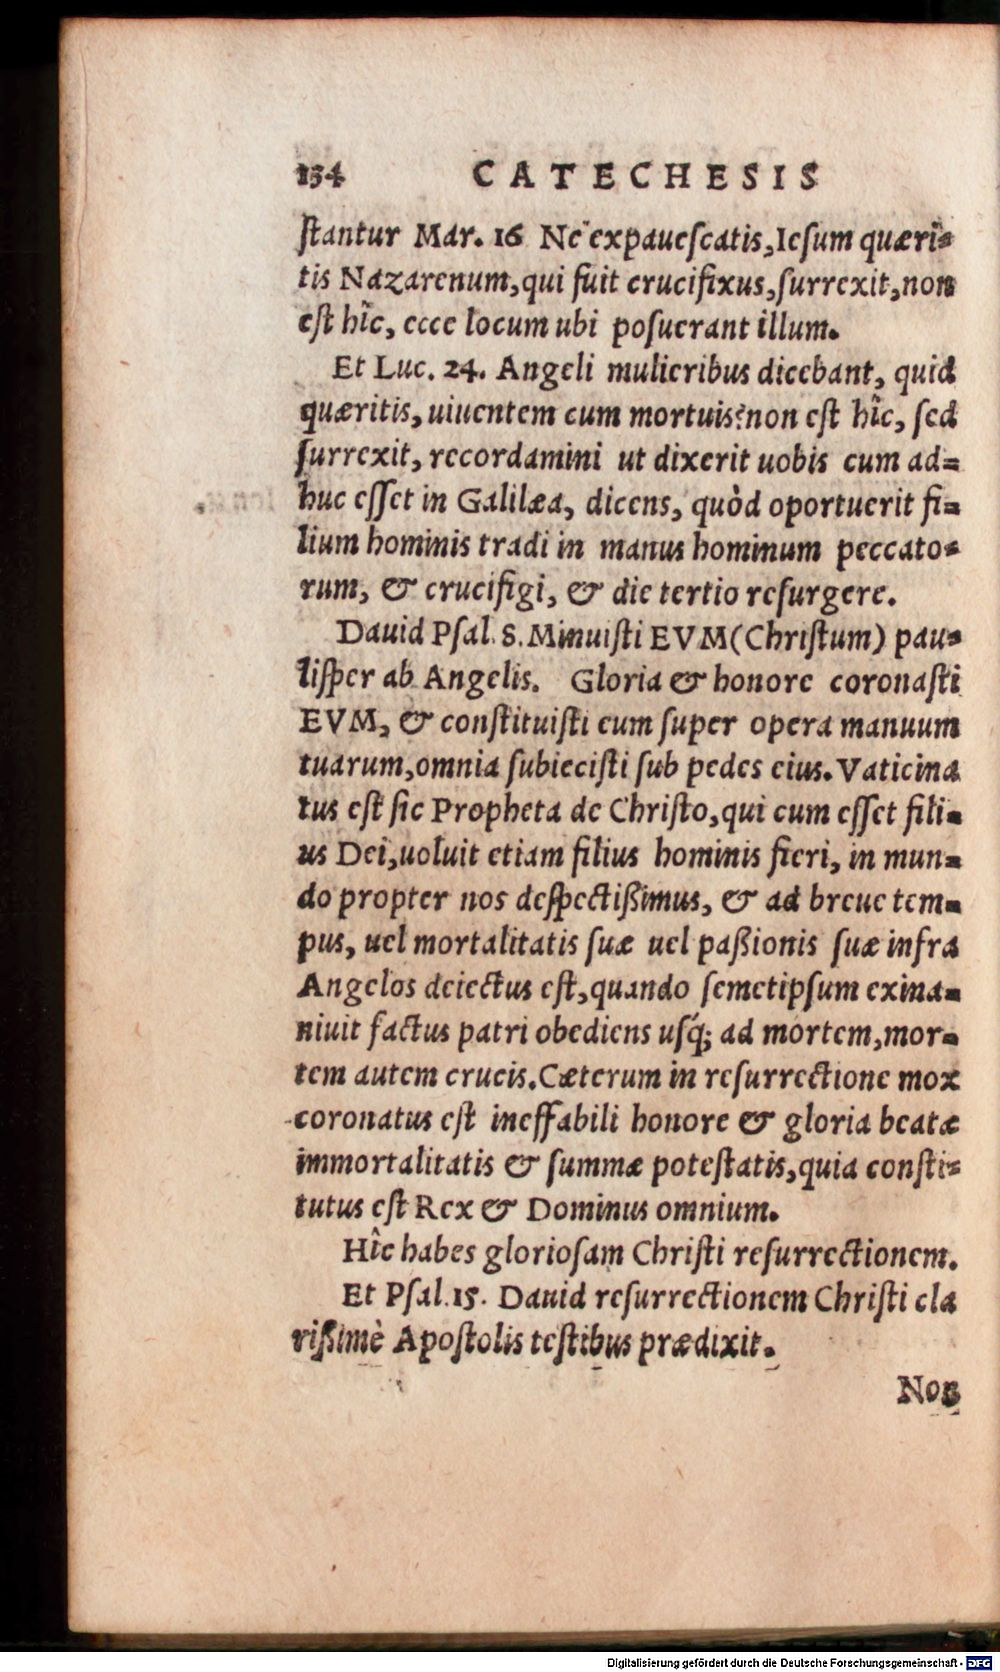 134 CATECHESIS
ſtantur Mar. 16 Ne expaueſcatis, Ieſum quæri=
tis Nazarenum, qui fuit crucifixus, ſurrexit, non
eſt hîc, ecce locum ubi poſuerant illum.
Et Luc. 24. Angeli mulieribus dicebant, quid
quæritis, uiuentem cum mortuis? non eſt hîc, ſed
ſurrexit, recordamini ut dixerit uobis cum ad=
huc eſſet in Galilæa, dicens, quòd oportuerit fi=
lium hominis tradi in manus hominum peccato=
rum, & crucifigi, & die tertio reſurgere.
Dauid Pſal. 8. Minuiſti EVM (Chriſtum) pau=
liſper ab Angelis. Gloria & honore coronaſti
EVM, & conſtituiſti eum ſuper opera manuum
tuarum, omnia ſubieciſti ſub pedes eius. Vaticina
tus eſt ſic Propheta de Chriſto, qui cum eſſet fili=
us Dei, uoluit etiam filius hominis fieri, in mun=
do propter nos deſpectißimus, & ad breue tem=
pus, uel mortalitatis ſuæ uel paßionis ſuæ infra
Angelos deiectus eſt, quando ſemetipſum exina=
niuit factus patri obediens uſq́; ad mortem, mor=
tem autem crucis. Cæterum in reſurrectione mox
coronatus eſt ineffabili honore & gloria beatæ
immortalitatis & ſummæ poteſtatis, quia conſti=
tutus eſt Rex & Dominus omnium.
Hîc habes glorioſam Chriſti reſurrectionem.
Et Pſal. 15. Dauid reſurrectionem Chriſti cla
rißimè Apoſtolis teſtibus prædixit.
Non
Digitalisierung gefördert durch die Deutsche Forschungsgemeinschaft - DFG